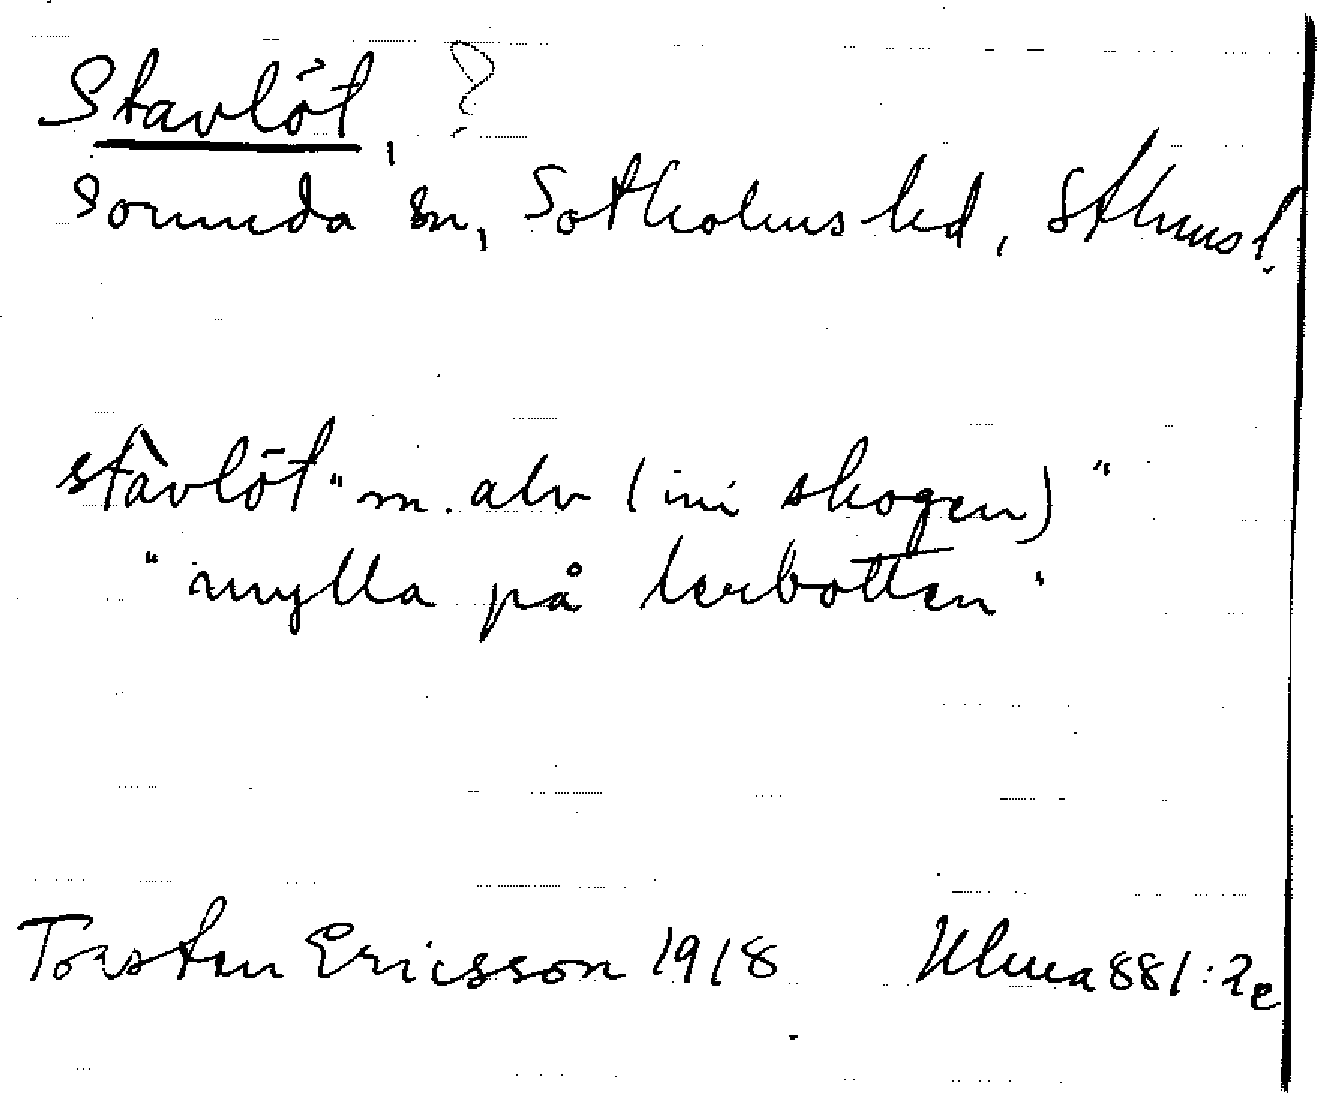 Stavlöt, ?
Sorunda sn, Sotholms hd, Sthmsl.
stàvlöt "m. alv (ini skogen)"
"mylla på lerbotten"
Torsten Ericsson 1918 Ulma 881:2e